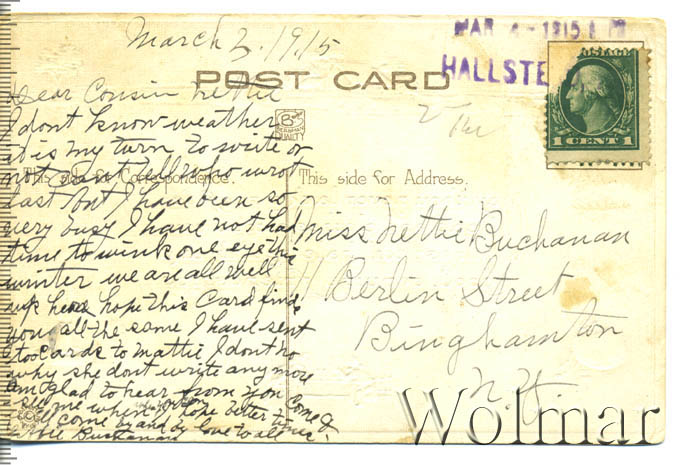 March 2. 1915
MAR 4 - 1915
HALLSTE
POST CARD
POSTAGE
1 CENT 1
QUALITY
This side for Correspondence.
This side for Address.
Dear Cousin Nettie
I dont know weather
it is my turn to write or
not cant tell who wrot
last but I have been so
very busy I have not had
time to wink one eye this
winter we are all well
up here hope this Card finds
you all the same I have sent
too Cards to Mattie I dont no
why she dont write any more
am glad to hear from you Come &
see me when you I hope better times
will come by and by love to all
Buchanan
Miss Nettie Buchanan
11 Berlin Street
Binghamton
N.Y.
Wolmar